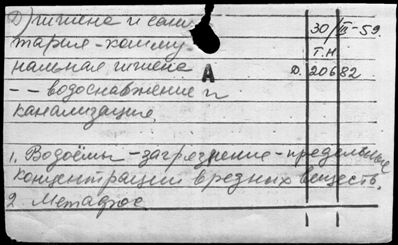 Д) гигиена и сани
тария - комму
нальная гигиена
-- водоснабжение и
канализация.
30/III-59.
Т.Н
А
D. 20682
1. Водоёмы - загрязнение - предельные
концентрации вредных веществ.
2. Метафос